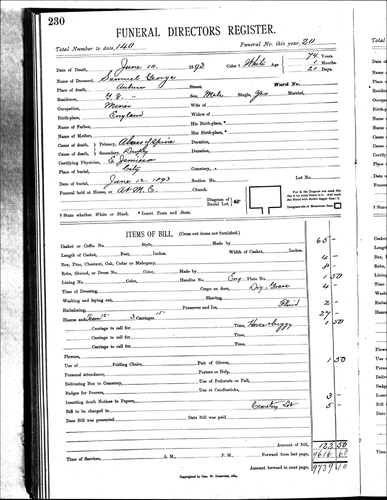 230
FUNERAL DIRECTORS REGISTER.
Total Number to date, 140 Funeral No. this year, 20
Date of Death, June 10. 1893 Color † White Age 74 Years
1 Months
21 Days.
Name of Deceased, Samuel George
Place of death, Auburn Street, Ward No.
Residence, Sex, Male Single, Yes Married,
Occupation, Miner Wife of
Birth-place, England Widow of
Name of Father, His Birth-place,*
Name of Mother, Her Birth-place,*
Cause of death, Primary, of Spine Duration,
Cause of death, Secondary, Dropsy Duration,
Certifying Physician, Residence,
Place of burial, City Cemetery,
Date of burial, June 12, 1893 Section No. Lot No.
Funeral held at House, or At M. E. Church.
Diagram of Burial Lot
† State whether White or Black. * Insert Town and State.
ITEMS OF BILL. (Cross out items not furnished.)
Casket or Coffin No. Style, Made by 65 -
Length of Casket, Feet, Inches. Width of Casket, Inches.
Box, Pine, Chestnut, Oak, Cedar or Mahogany, 4 -
Robe, Shroud, or Dress No. Color, Made by 8 -
Lining No. Color, Handles No. Eng Plate No. 1 50
Time of Dressing, Crape on door, Dig. Grave 4 -
Washing and laying out, Shaving,
Embalming, Preserver and Ice, Fluid 2 -
Hearse and Team 12- 3 Carriages 15- 27 -
Carriage to call for Time, Horse & buggy 1 50
Carriage to call for Time,
Carriage to call for Time,
Flowers,
Use of Folding Chairs, Pair of Gloves, 1 50
Personal attendance, Porters or Help,
Delivering Box to Cemetery, Use of Pedestals or Pall,
Badges for Bearers, Use of Candlesticks,
Inserting death Notices in Papers, 3 -
Bill to be charged to Cemetery Lot 5 -
Date Bill was presented Date Bill was paid
Amount of Bill, 122 50
Time of Services, A. M., P. M., Forward from last page, 9616 60
Amount forward to next page, 9739 10